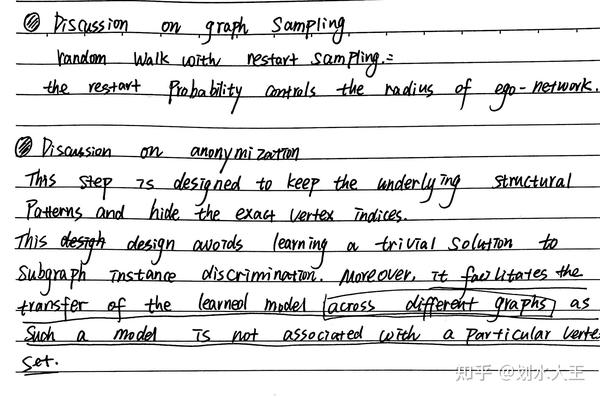 Discussion on graph Sampling
random walk with restart sampling:
the restart Probability controls the radius of ego-network.
Discussion on anonymization
This step is designed to keep the underlying structural
Patterns and hide the exact vertex indices.
This design design avoids learning a trivial solution to
Subgraph instance discrimination. Moreover, it facilitates the
transfer of the learned model across different graphs as
Such a model is not associated with a particular vertex
set.
知乎 @划水大王